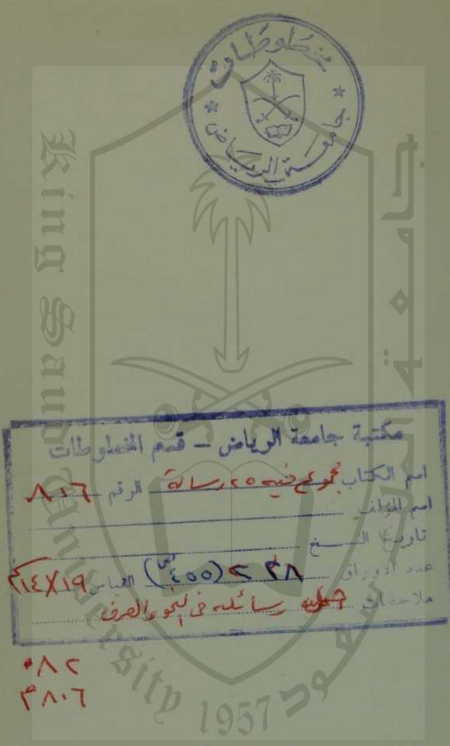 مخطوطات
جامعة الرياض
King Saud University
1957
جامعة
مكتبة جامعة الرياض – قسم المخطوطات
اسم الكتاب مجموع فيه ٢٥ رسالة الرقم ٨٠٦
اسم المؤلف
تاريخ النسخ
عدد الاوراق ٢٢٨ (٤٥٥) القياس ١٩×١٤
ملاحظات رسائله في النحو والصرف
٠٨٢
٨٠٦م